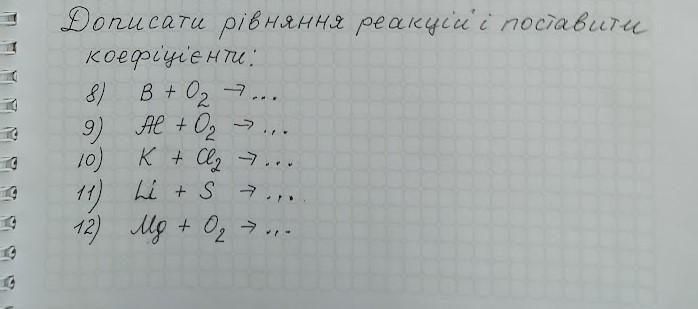 Дописати рівняння реакцій і поставити
коефіцієнти:
8) B + O₂ → ...
9) Al + O₂ → ...
10) K + Cl₂ → ...
11) Li + S → ...
12) Mg + O₂ → ...